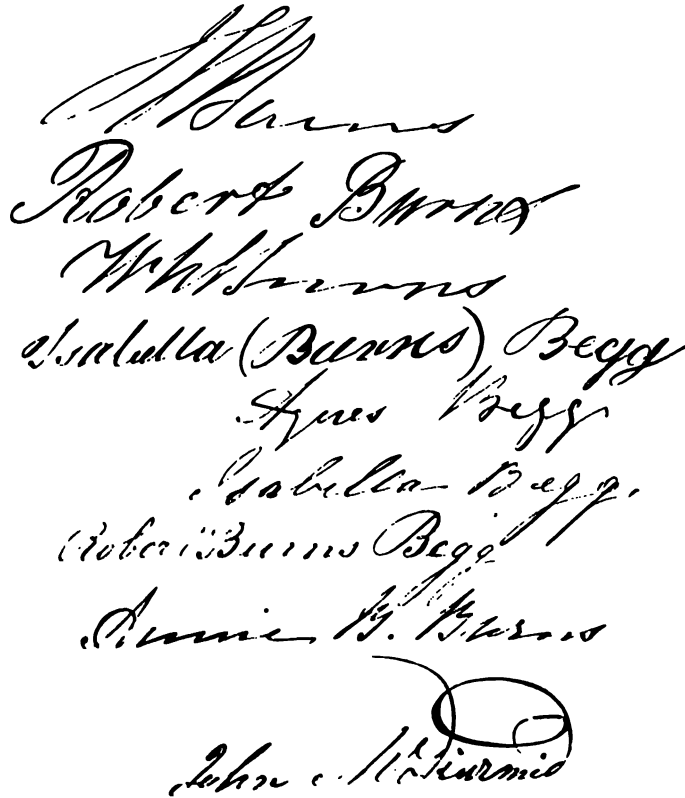 J G Burns
Robert Burns
W N Burns
Isabella (Burns) Begg
Agnes Begg
Isabella Begg.
Robert Burns Begg
Annie B. Burns
John McDiarmid